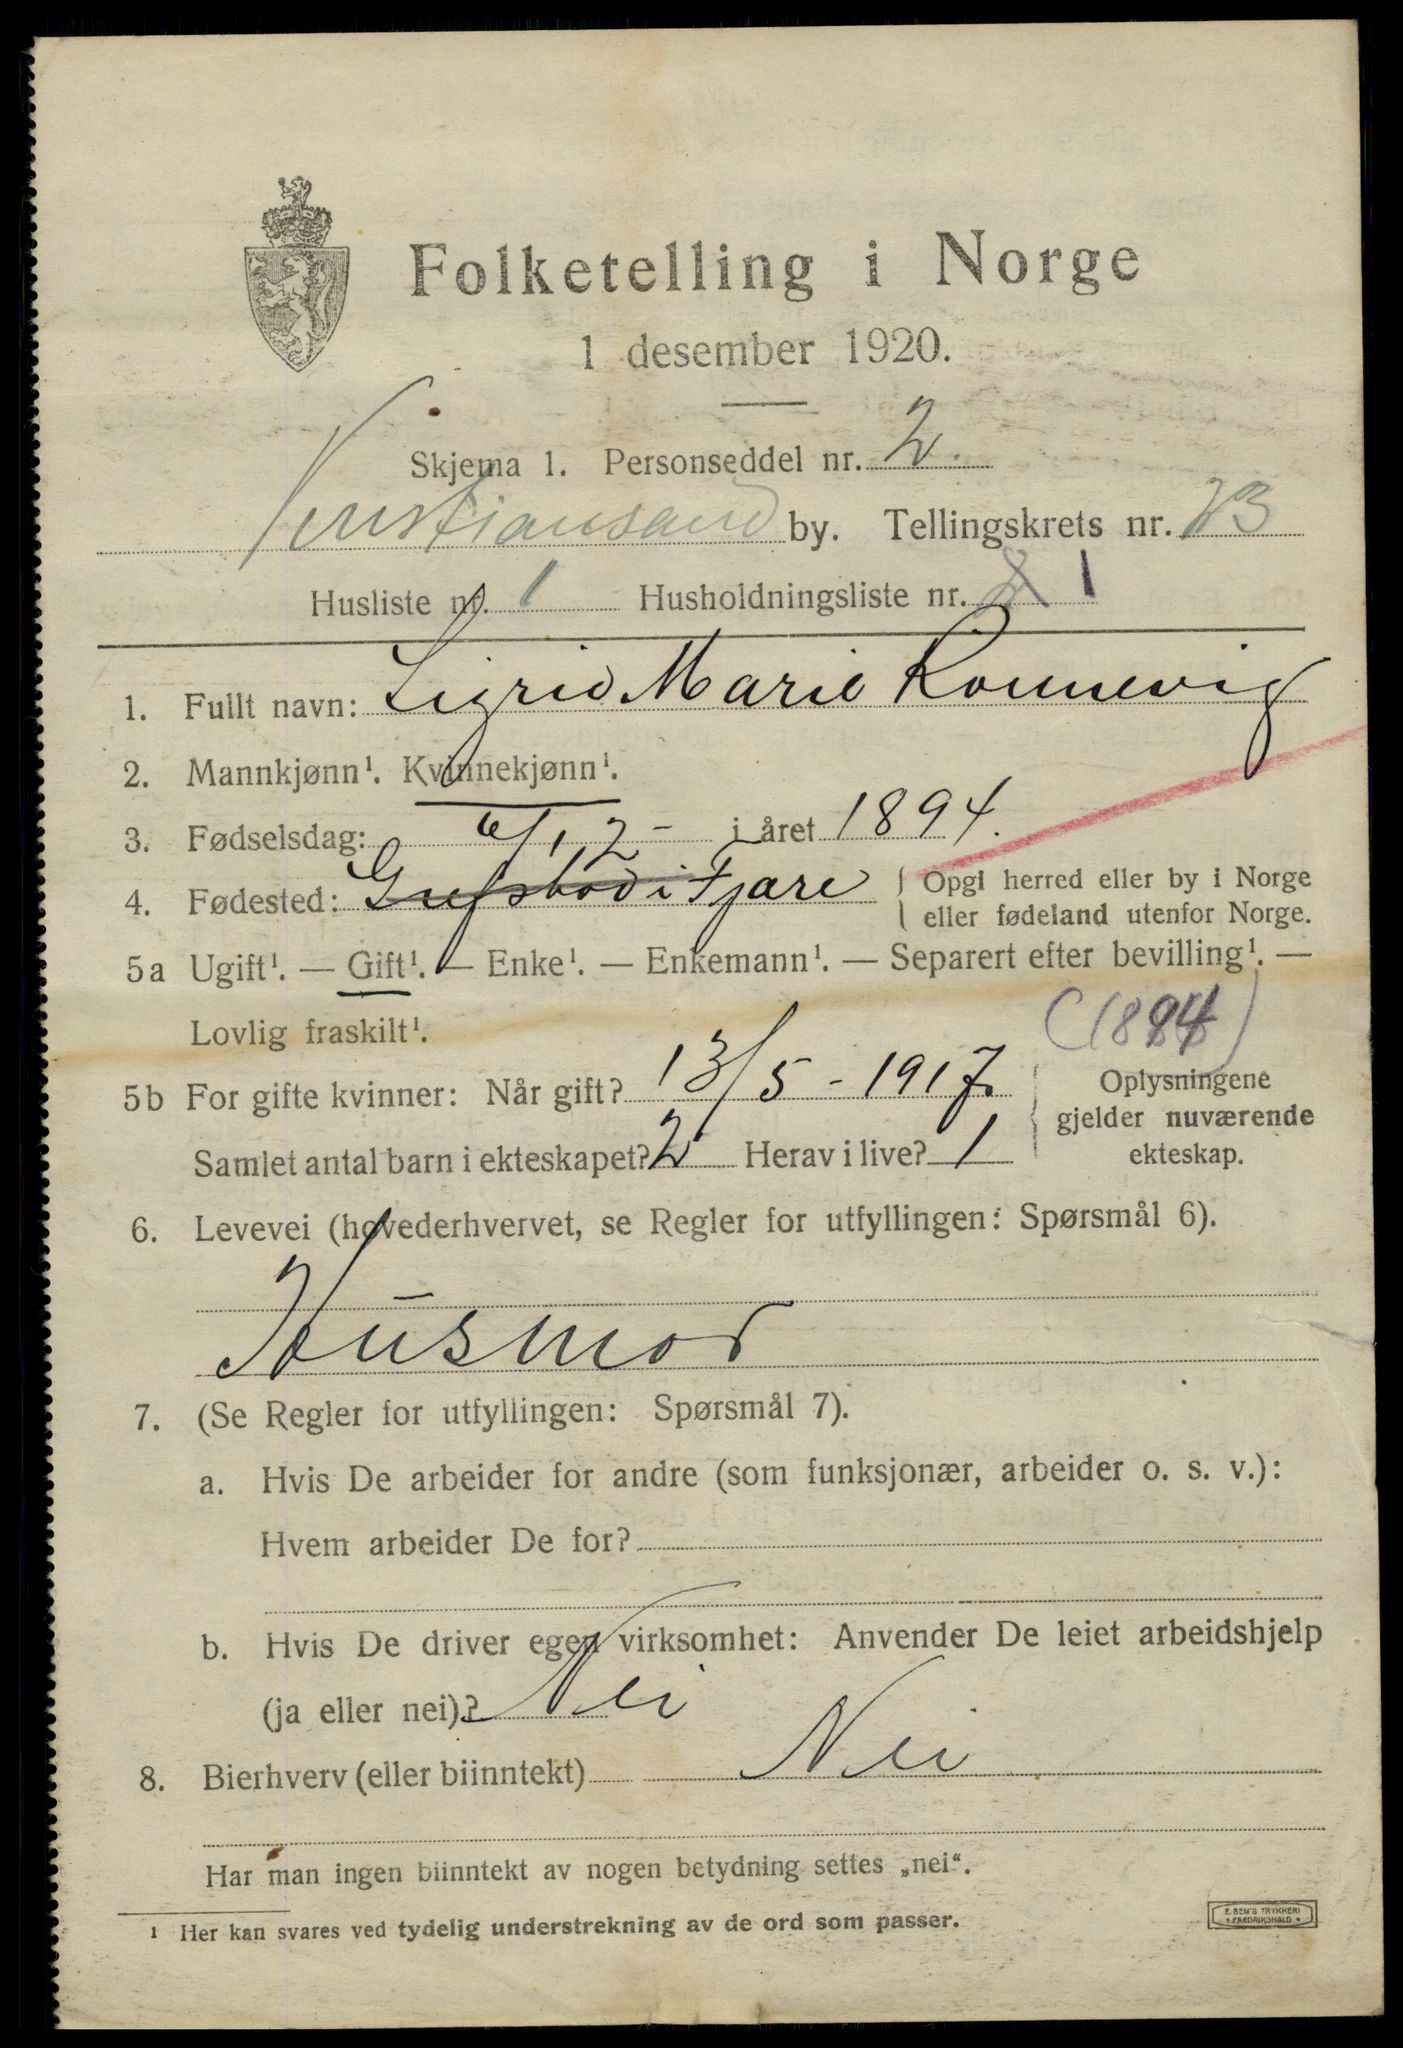 Folketelling i Norge
1 desember 1920.
Skjema 1. Personseddel nr. 2.
Kristiansand by. Tellingskrets nr. 23
Husliste nr. 1 Husholdningsliste nr. 1
1. Fullt navn: Sigrid Marie Ronnevig
2. Mannkjønn¹. Kvinnekjønn¹.
3. Fødselsdag: 6/12 - i året 1894.
4. Fødested: Grefstad i Fjære { Opgi herred eller by i Norge
eller fødeland utenfor Norge.
5a Ugift¹. — Gift¹. — Enke¹. — Enkemann¹. — Separert efter bevilling¹. —
Lovlig fraskilt¹.
5b For gifte kvinner: Når gift? 13/5 - 1917.
Samlet antal barn i ekteskapet? 2 Herav i live? 1
Oplysningene
gjelder nuværende
ekteskap.
6. Levevei (hovederhvervet, se Regler for utfyllingen: Spørsmål 6).
Husmor
7. (Se Regler for utfyllingen: Spørsmål 7).
a. Hvis De arbeider for andre (som funksjonær, arbeider o. s. v.):
Hvem arbeider De for?
b. Hvis De driver egen virksomhet: Anvender De leiet arbeidshjelp
(ja eller nei)? Nei
8. Bierhverv (eller biinntekt) Nei
Har man ingen biinntekt av nogen betydning settes „nei“.
¹ Her kan svares ved tydelig understrekning av de ord som passer.
E. SEM'S TRYKKERI
FREDRIKSHALD